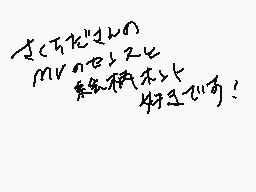 さくちださんの
MVのセンスと
絵柄ホント
好きです!